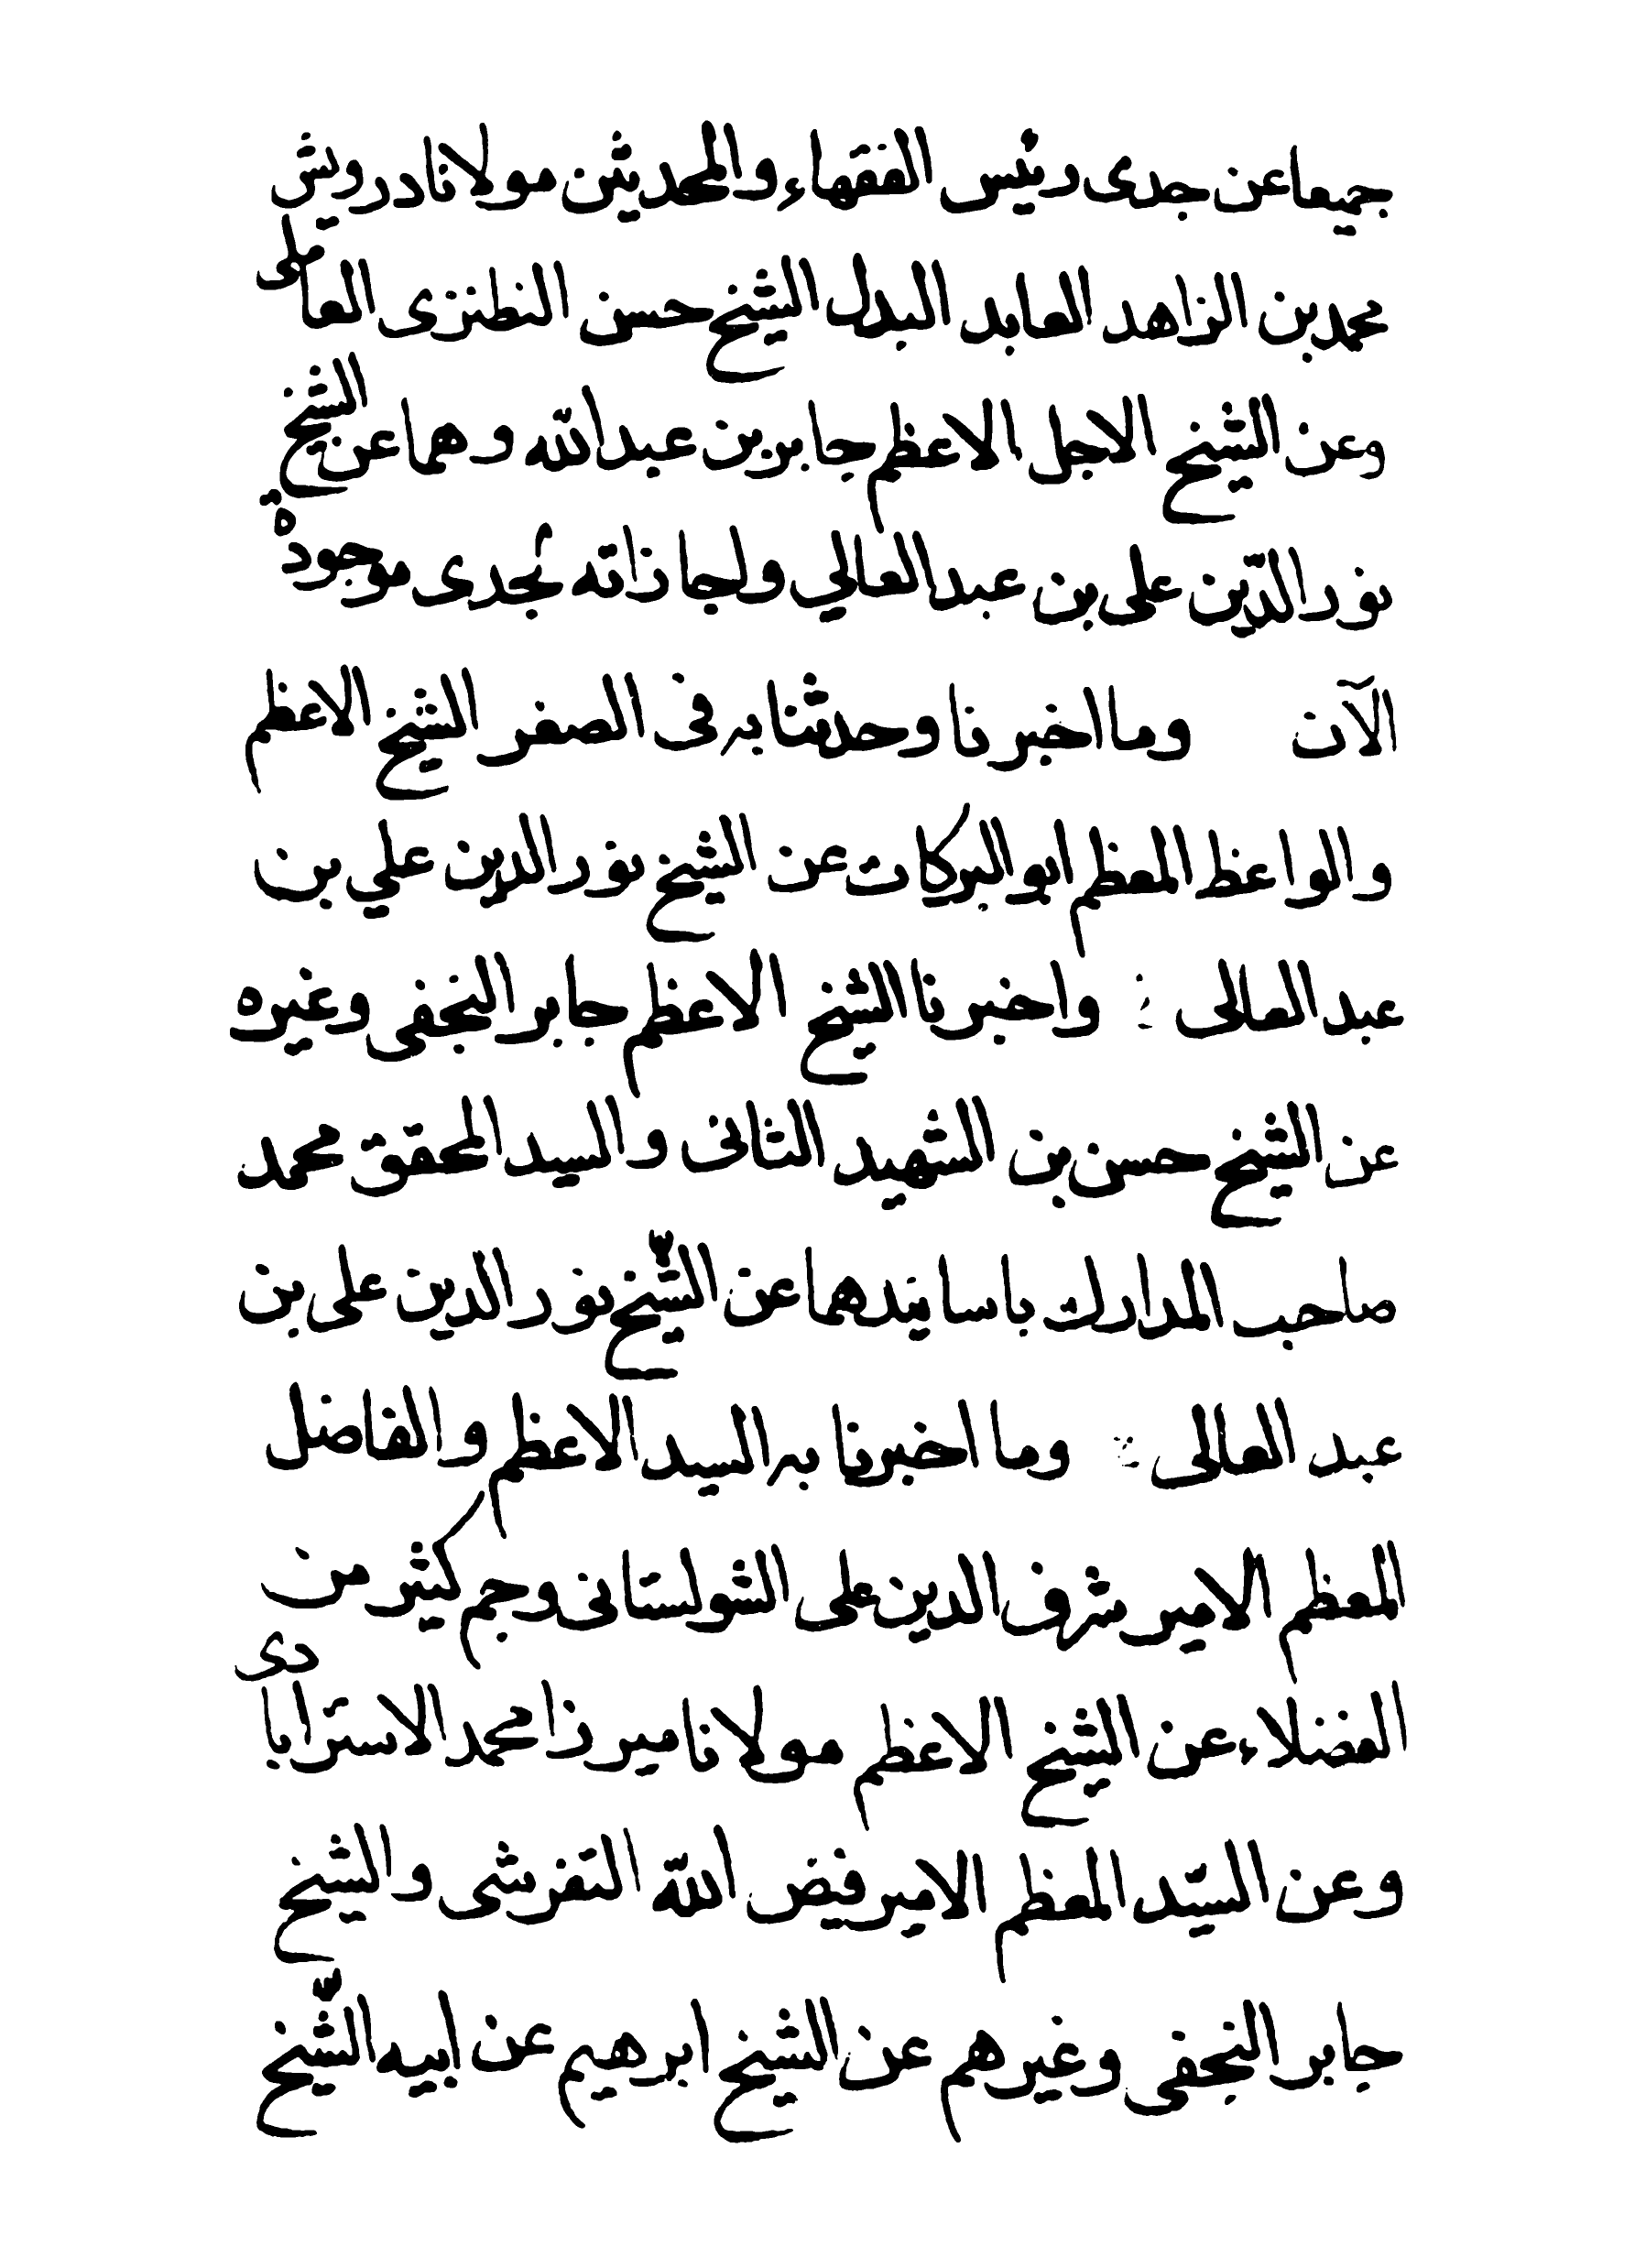 جميعا عن جدى رئيس الفقهاء والمحدثين مولانا درويش
محمد بن الزاهد العابد البدل الشيخ حسن النطنزى العاملى
وعن الشيخ الاجل الاعظم جابر بن عبد الله وهما عن الشيخ
نور الدّين على بن عبد العالي واجازاته لجدى موجودة
الآن وما اخبرنا وحدثنا به فى الصغر الشيخ الاعظم
والواعظ المعظم ابو البركات عن الشيخ نور الدين علي بن
عبد العالى : واخبرنا الشيخ الاعظم جابر النجفى وغيره
عن الشيخ حسن بن الشهيد الثانى والسيد المحقق محمد
صاحب المدارك باسانيدهما عن الشّيخ نور الدين على بن
عبد العالى : وما اخبرنا به السيد الاعظم والفاضل
المعظم الامير شرف الدين على الشولستانى وجم كثير من
الفضلاء عن الشيخ الاعظم مولانا ميرزا محمد الاسترابادى
وعن السيّد المعظم الامير فيض اللّه التفرشى والشيخ
جابر النجفى وغيرهم عن الشيخ ابرهيم عن ابيه الشّيخ